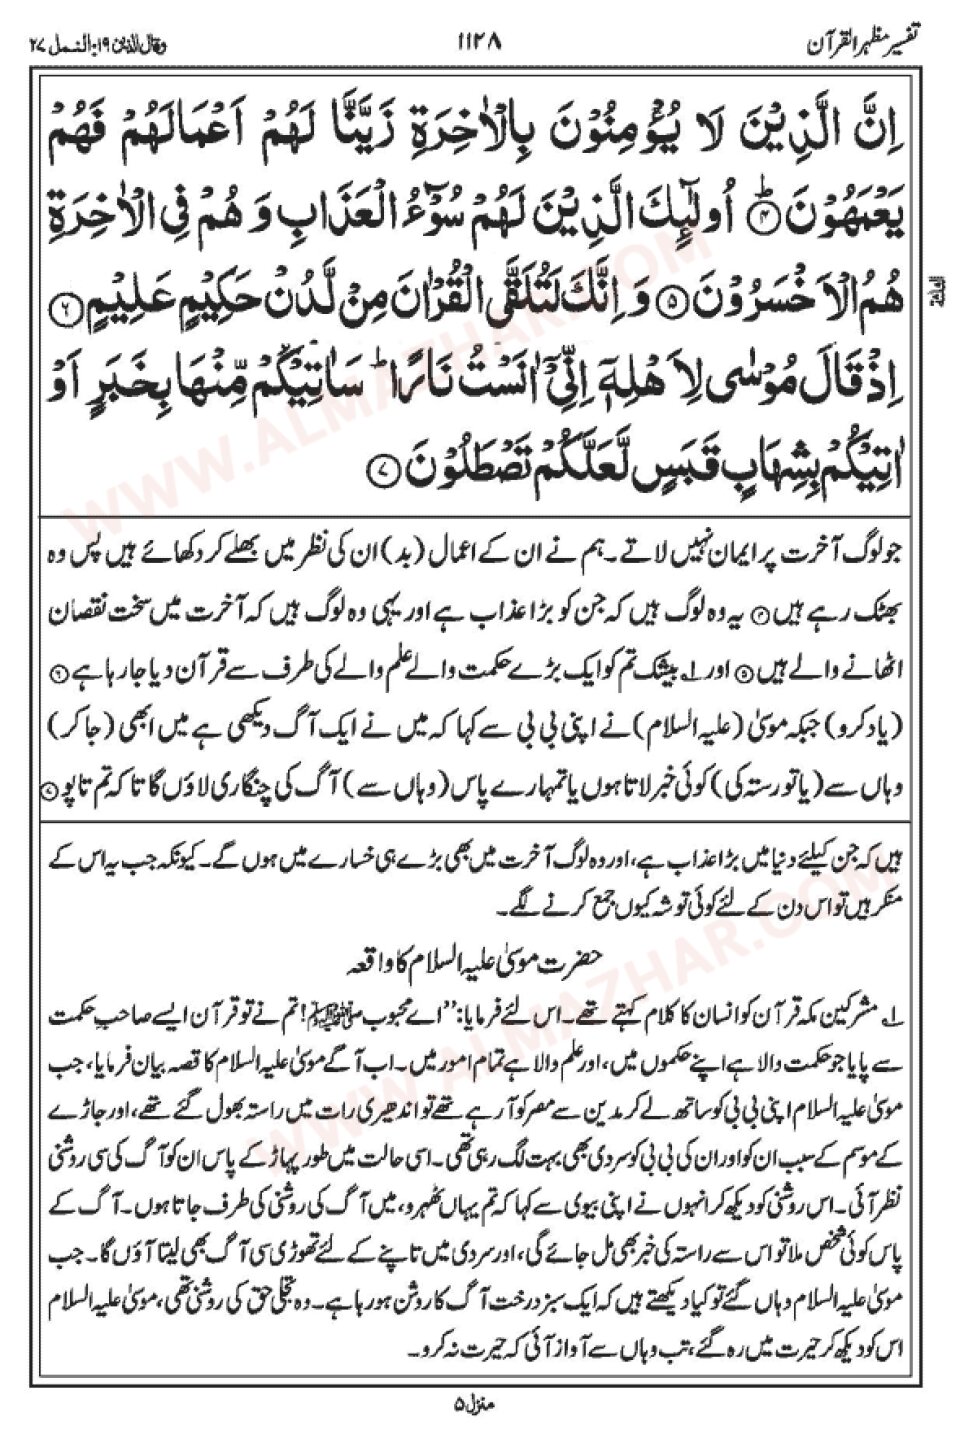 تفسیر مظہر القرآن
۱۱۲۸
وقال الذین ۱۹: النمل ۲۷
اِنَّ الَّذِيْنَ لَا يُؤْمِنُوْنَ بِالْاٰخِرَةِ زَيَّنَّا لَهُمْ اَعْمَالَهُمْ فَهُمْ
يَعْمَهُوْنَ ؕ﴿۴﴾ اُولٰٓئِكَ الَّذِيْنَ لَهُمْ سُوْٓءُ الْعَذَابِ وَ هُمْ فِى الْاٰخِرَةِ
هُمُ الْاَخْسَرُوْنَ ﴿۵﴾ وَ اِنَّكَ لَتُلَقَّى الْقُرْاٰنَ مِنْ لَّدُنْ حَكِيْمٍ عَلِيْمٍ ﴿۶﴾
اِذْ قَالَ مُوْسٰى لِاَهْلِهٖٓ اِنِّىْٓ اٰنَسْتُ نَارًا ؕ سَاٰتِيْكُمْ مِّنْهَا بِخَبَرٍ اَوْ
اٰتِيْكُمْ بِشِهَابٍ قَبَسٍ لَّعَلَّكُمْ تَصْطَلُوْنَ ﴿۷﴾
جو لوگ آخرت پر ایمان نہیں لاتے۔ ہم نے ان کے اعمال (بد) ان کی نظر میں بھلے کر دکھائے ہیں پس وہ
بھٹک رہے ہیں ﴿۴﴾ یہ وہ لوگ ہیں کہ جن کو بڑا عذاب ہے اور یہی وہ لوگ ہیں کہ آخرت میں سخت نقصان
اٹھانے والے ہیں ﴿۵﴾ اور ۱؎ بیشک تم کو ایک بڑے حکمت والے علم والے کی طرف سے قرآن دیا جا رہا ہے ﴿۶﴾
(یاد کرو) جبکہ موسیٰ (علیہ السلام) نے اپنی بی بی سے کہا کہ میں نے ایک آگ دیکھی ہے میں ابھی (جا کر)
وہاں سے (یا تو رستہ کی) کوئی خبر لاتا ہوں یا تمہارے پاس (وہاں سے) آگ کی چنگاری لاؤں گا تا کہ تم تاپو ﴿۷﴾
ہیں کہ جن کیلئے دنیا میں بڑا عذاب ہے، اور وہ لوگ آخرت میں بھی بڑے ہی خسارے میں ہوں گے۔ کیونکہ جب یہ اس کے
منکر ہیں تو اس دن کے لئے کوئی توشہ کیوں جمع کرنے لگے۔
حضرت موسیٰ علیہ السلام کا واقعہ
۱؎ مشرکین مکہ قرآن کو انسان کا کلام کہتے تھے۔ اس لئے فرمایا: ”اے محبوب ﷺ! تم نے تو قرآن ایسے صاحبِ حکمت
سے پایا جو حکمت والا ہے اپنے حکموں میں، اور علم والا ہے تمام امور میں۔ اب آگے موسیٰ علیہ السلام کا قصہ بیان فرمایا، جب
موسیٰ علیہ السلام اپنی بی بی کو ساتھ لے کر مدین سے مصر کو آ رہے تھے تو اندھیری رات میں راستہ بھول گئے تھے، اور جاڑے
کے موسم کے سبب ان کو اور ان کی بی بی کو سردی بھی بہت لگ رہی تھی۔ اسی حالت میں طور پہاڑ کے پاس ان کو آگ کی سی روشنی
نظر آئی۔ اس روشنی کو دیکھ کر انہوں نے اپنی بیوی سے کہا کہ تم یہاں ٹھہرو، میں آگ کی روشنی کی طرف جاتا ہوں۔ آگ کے
پاس کوئی شخص ملا تو اس سے راستہ کی خبر بھی مل جائے گی، اور سردی میں تاپنے کے لئے تھوڑی سی آگ بھی لیتا آؤں گا۔ جب
موسیٰ علیہ السلام وہاں گئے تو کیا دیکھتے ہیں کہ ایک سبز درخت آگ کا روشن ہو رہا ہے۔ وہ تجلی حق کی روشنی تھی، موسیٰ علیہ السلام
اس کو دیکھ کر حیرت میں رہ گئے، تب وہاں سے آواز آئی کہ حیرت نہ کرو۔
منزل ۵
WWW.ALMAZHAR.COM
WWW.ALMAZHAR.COM